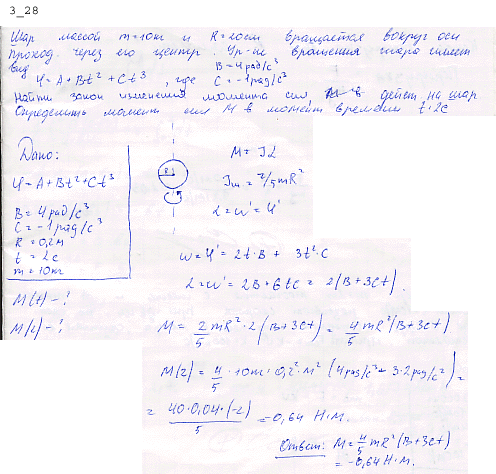 3_28
Шар массой m=10кг и R=20см вращается вокруг оси
проход. через его центр. Ур-ие вращения шара имеет
вид φ=A+Bt²+Ct³, где B=4рад/с³ C=-1рад/с³
Найти закон изменения момента сил действ на шар
Определить момент сил M в момент времени t=2с
Дано:
φ=A+Bt²+Ct³
B=4рад/с³
C=-1рад/с³
R=0,2м
t=2с
m=10кг
M(t)-?
M(2)-?
R
M=Jα
Jш=2/5mR²
α=ω'=φ''
ω=φ'=2t·B + 3t²·C
α=ω'=2B+6tC = 2(B+3Ct).
M= 2/5 mR²·2(B+3Ct)= 4/5 mR²(B+3Ct)
M(2)= 4/5 ·10кг·0,2²·м² (4рад/с³-3·2рад/с²)=
= 40·0,04·(-2)/5 =-0,64 Н·м.
Ответ: M=4/5 mR²(B+3Ct)
=-0,64 Н·м.